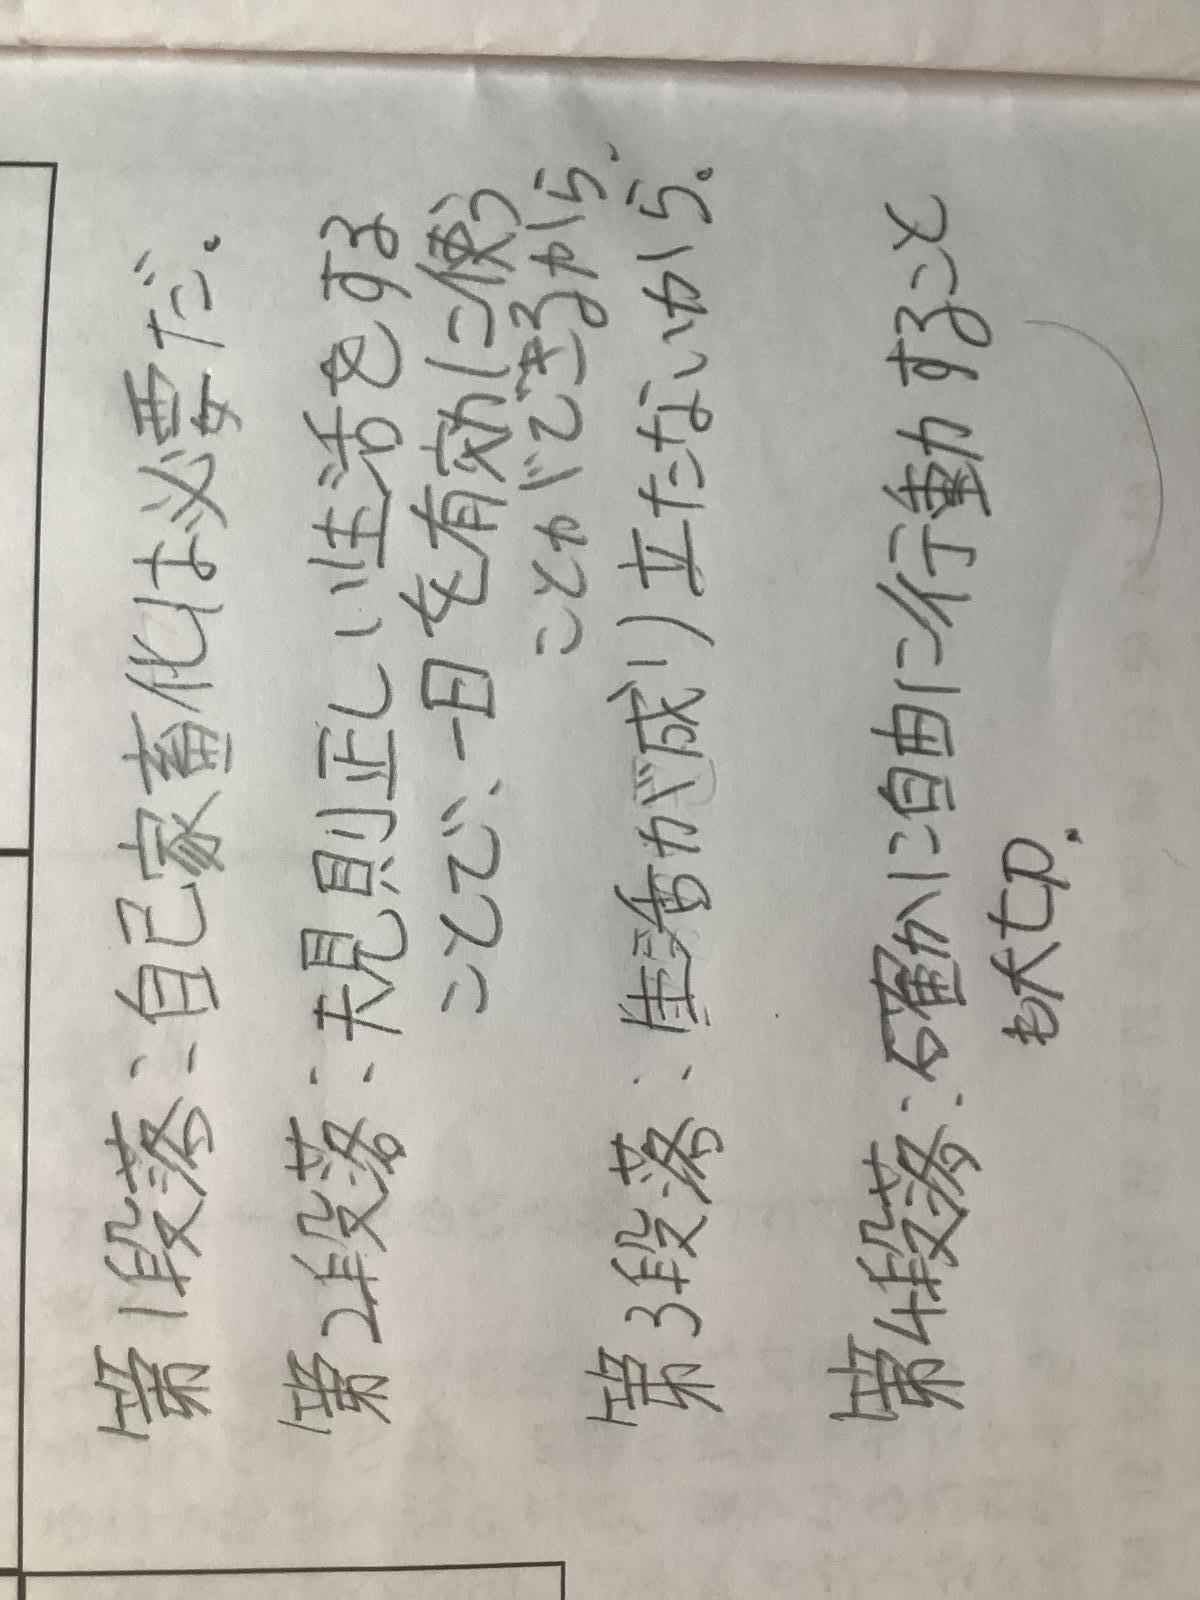 第1段落:自己家畜化は必要だ。
第2段落:規則正しい生活をする
ことで、一日を有効に使う
ことができるから。
第3段落:生活が成り立たないから。
第4段落:確かに自由に行動すること
も大切。